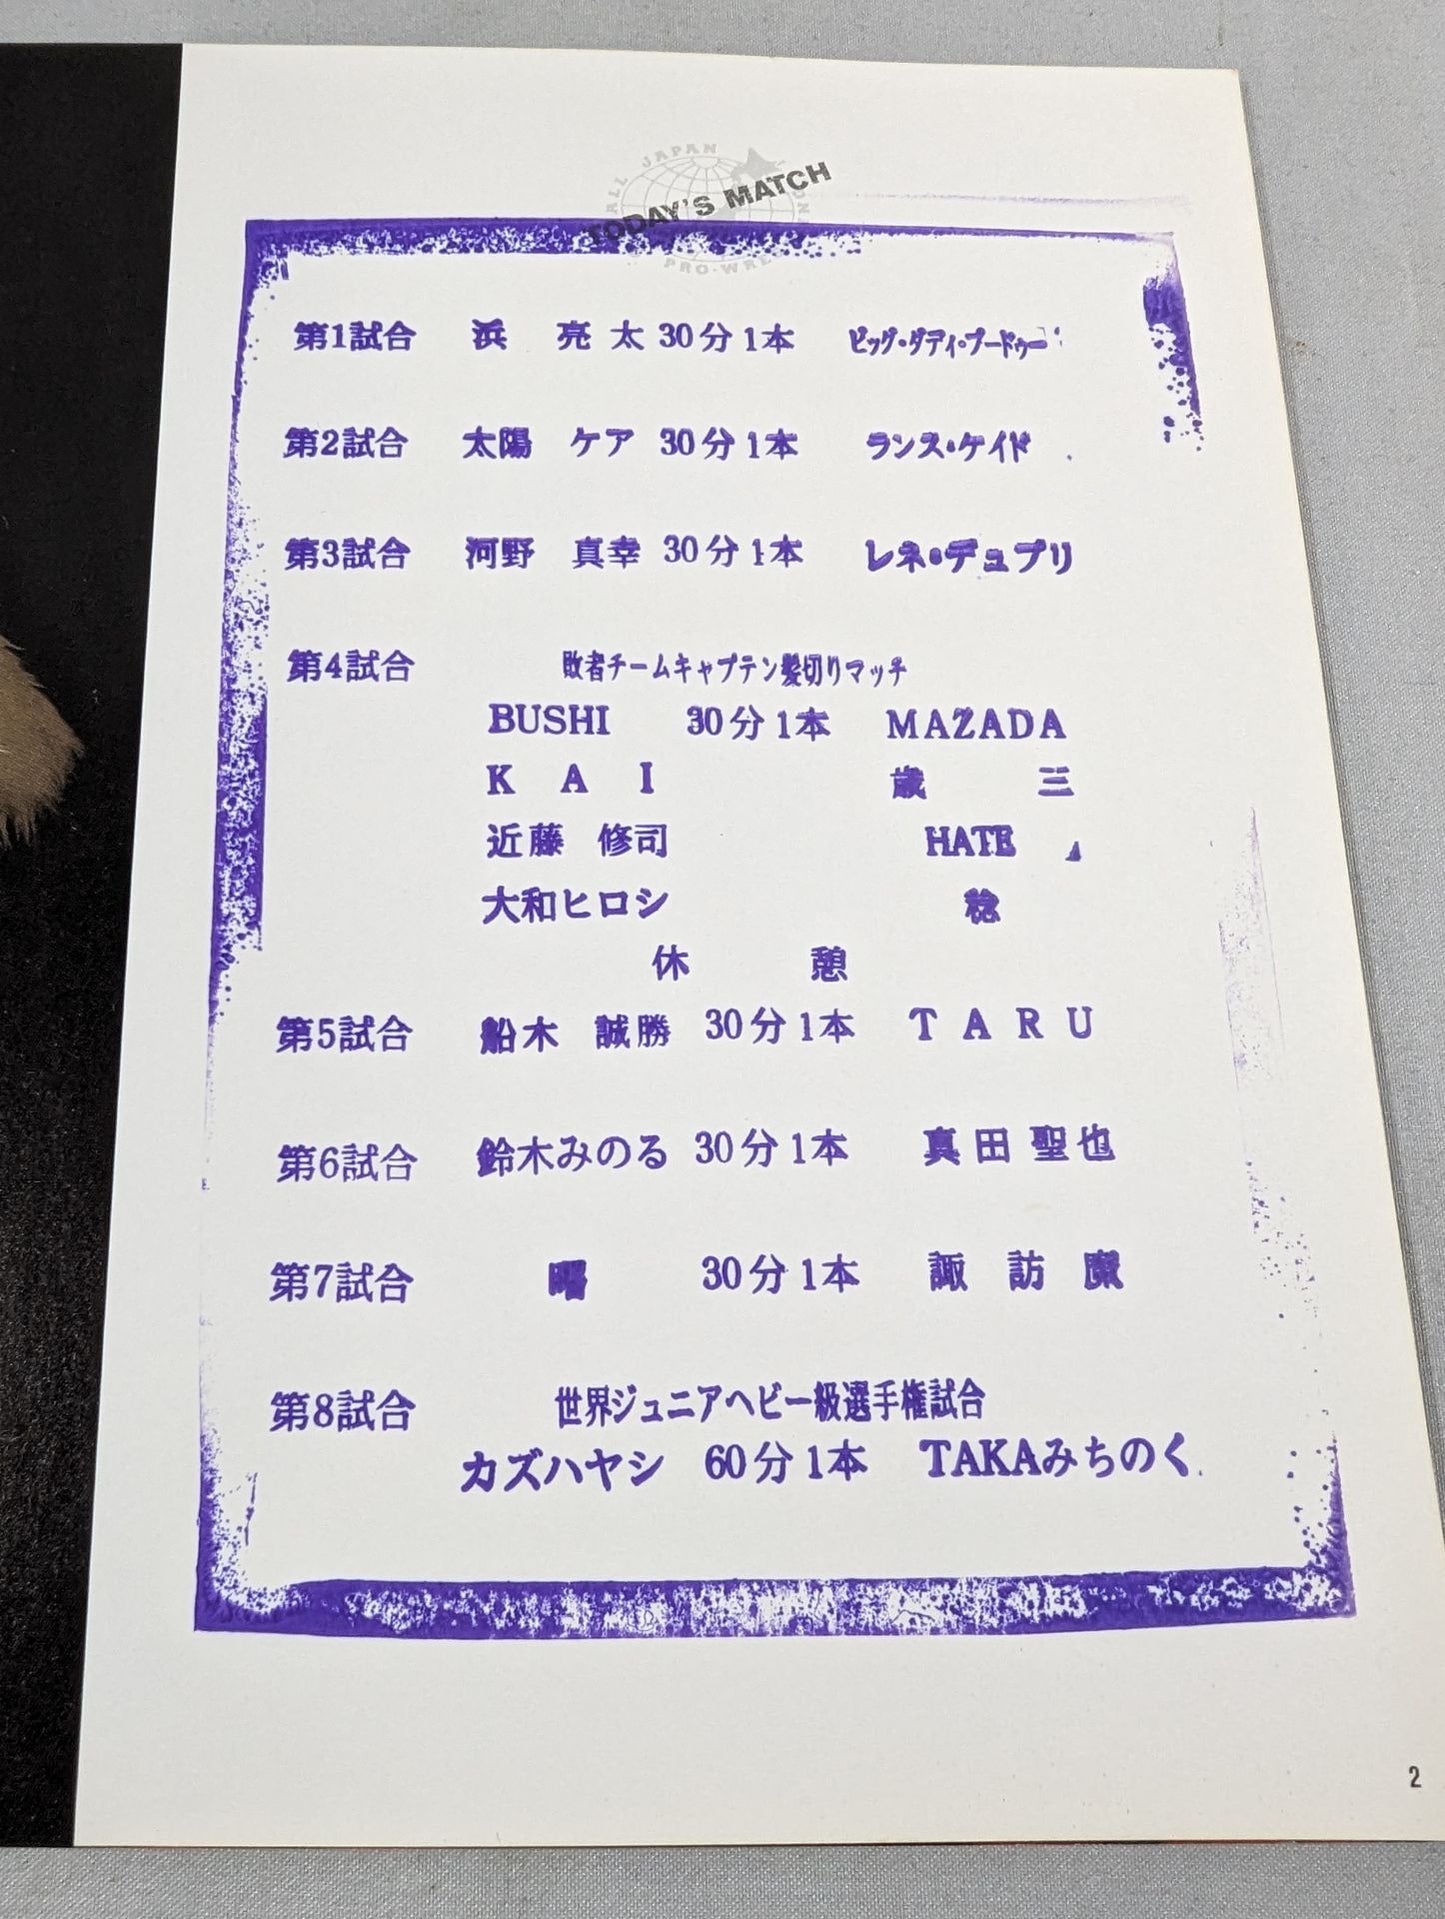 ALL JAPAN
TODAY'S MATCH
第1試合 浜 亮 太 30分1本 ビッグ・ダディ・ブードゥー
第2試合 太陽 ケア 30分1本 ランス・ケイド
第3試合 河野 真幸 30分1本 レネ・デュプリ
第4試合 敗者チームキャプテン髪切りマッチ
BUSHI 30分1本 MAZADA
K A I 歳 三
近藤 修司 HATE
大和ヒロシ 稔
休 憩
第5試合 船木 誠勝 30分1本 T A R U
第6試合 鈴木みのる 30分1本 真 田 聖 也
第7試合 曙 30分1本 諏 訪 魔
第8試合 世界ジュニアヘビー級選手権試合
カズハヤシ 60分1本 TAKAみちのく
2